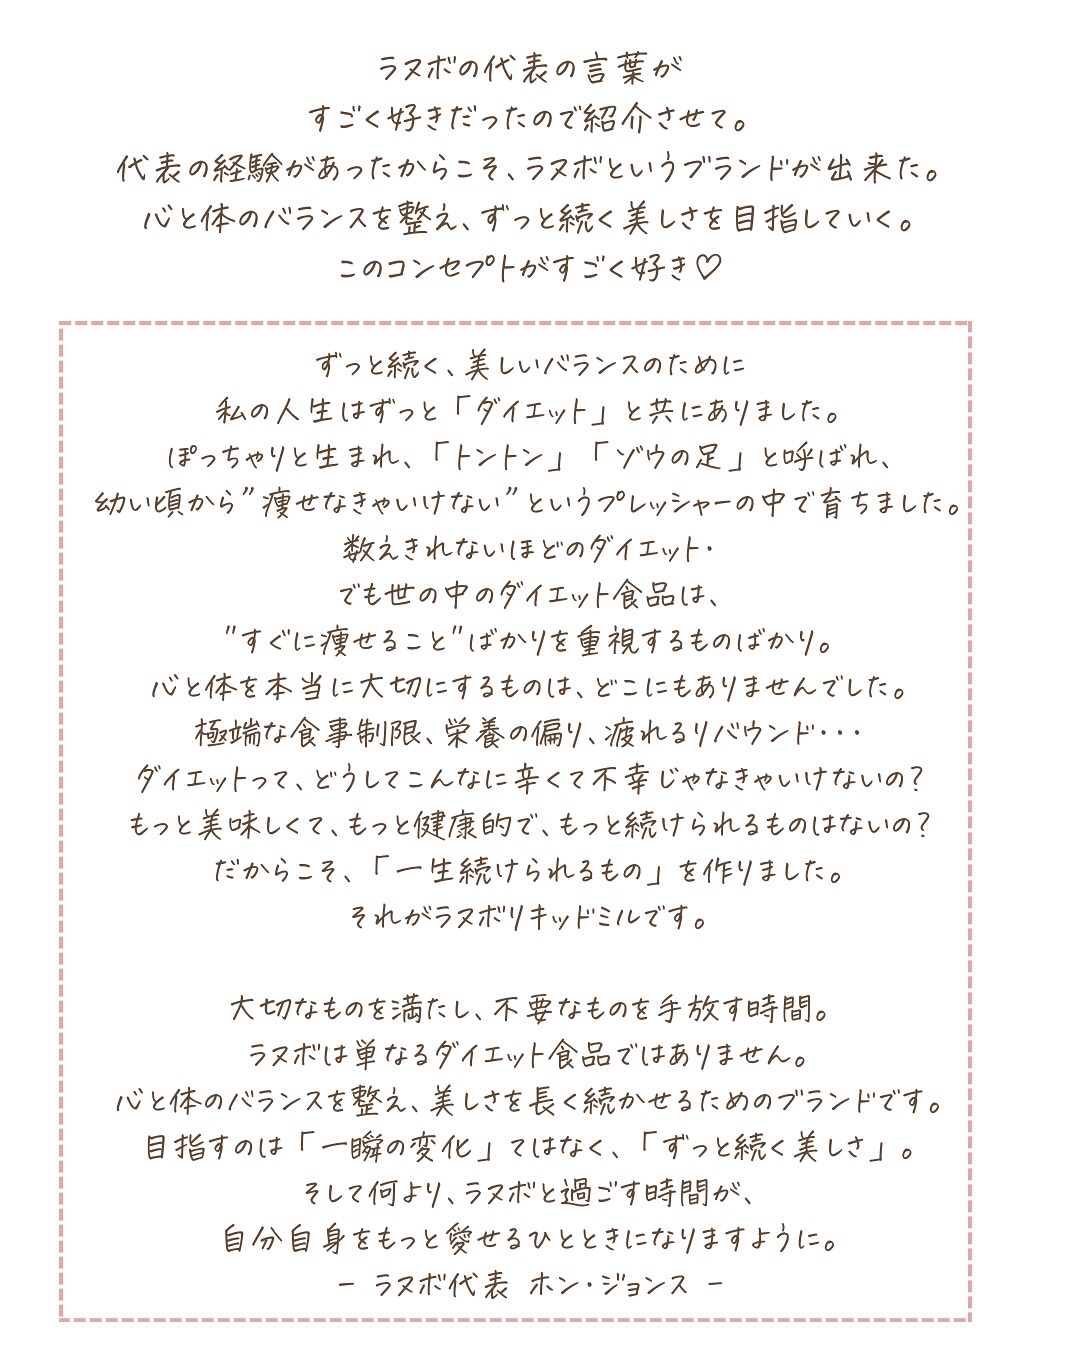 ラヌボの代表の言葉が
すごく好きだったので紹介させて。
代表の経験があったからこそ、ラヌボというブランドが出来た。
心と体のバランスを整え、ずっと続く美しさを目指していく。
このコンセプトがすごく好き♡
ずっと続く、美しいバランスのために
私の人生はずっと「ダイエット」と共にありました。
ぽっちゃりと生まれ、「トントン」「ゾウの足」と呼ばれ、
幼い頃から”痩せなきゃいけない”というプレッシャーの中で育ちました。
数えきれないほどのダイエット・
でも世の中のダイエット食品は、
"すぐに痩せること"ばかりを重視するものばかり。
心と体を本当に大切にするものは、どこにもありませんでした。
極端な食事制限、栄養の偏り、疲れるリバウンド・・・
ダイエットって、どうしてこんなに辛くて不幸じゃなきゃいけないの?
もっと美味しくて、もっと健康的で、もっと続けられるものはないの?
だからこそ、「一生続けられるもの」を作りました。
それがラヌボリキッドミルです。
大切なものを満たし、不要なものを手放す時間。
ラヌボは単なるダイエット食品ではありません。
心と体のバランスを整え、美しさを長く続かせるためのブランドです。
目指すのは「一瞬の変化」てはなく、「ずっと続く美しさ」。
そして何より、ラヌボと過ごす時間が、
自分自身をもっと愛せるひとときになりますように。
- ラヌボ代表 ホン・ジョンス -